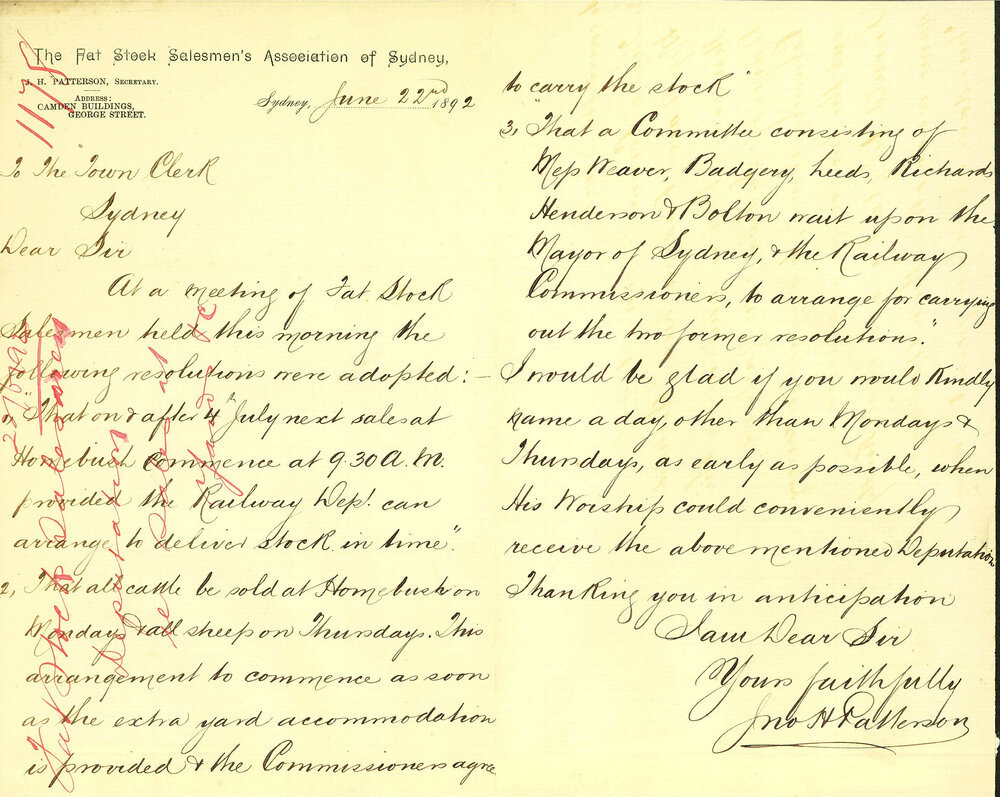 The Fat Stock Salesmen's Association of Sydney,
J. H. PATTERSON, SECRETARY.
ADDRESS:
CAMDEN BUILDINGS,
GEORGE STREET.
Sydney, June 22nd 1892
1178
To The Town Clerk
Sydney
Dear Sir
At a meeting of Fat Stock
Salesmen held this morning the
following resolutions were adopted:-
1, "That on & after 4th July next sales at
Homebush commence at 9.30 A.M.
provided the Railway Dept. can
arrange to deliver stock in time".
2, That all cattle be sold at Homebush on
Mondays & all sheep on Thursdays. This
arrangement to commence as soon
as the extra yard accommodation
is provided & the Commissioners agree
to carry the stock"
3, "That a Committee consisting of
Mess Weaver, Badgery, Leeds, Richards
Henderson & Bolton wait upon the
Mayor of Sydney, & the Railway
Commissioners, to arrange for carrying
out the two former resolutions."
I would be glad if you would kindly
name a day, other than Mondays &
Thursdays, as early as possible, when
His Worship could conveniently
receive the above mentioned Deputation
Thanking you in anticipation
I am Dear Sir
Yours faithfully
Jno H Patterson
Fat Stock Salesmen
Deputation
re Sales at
yards &c